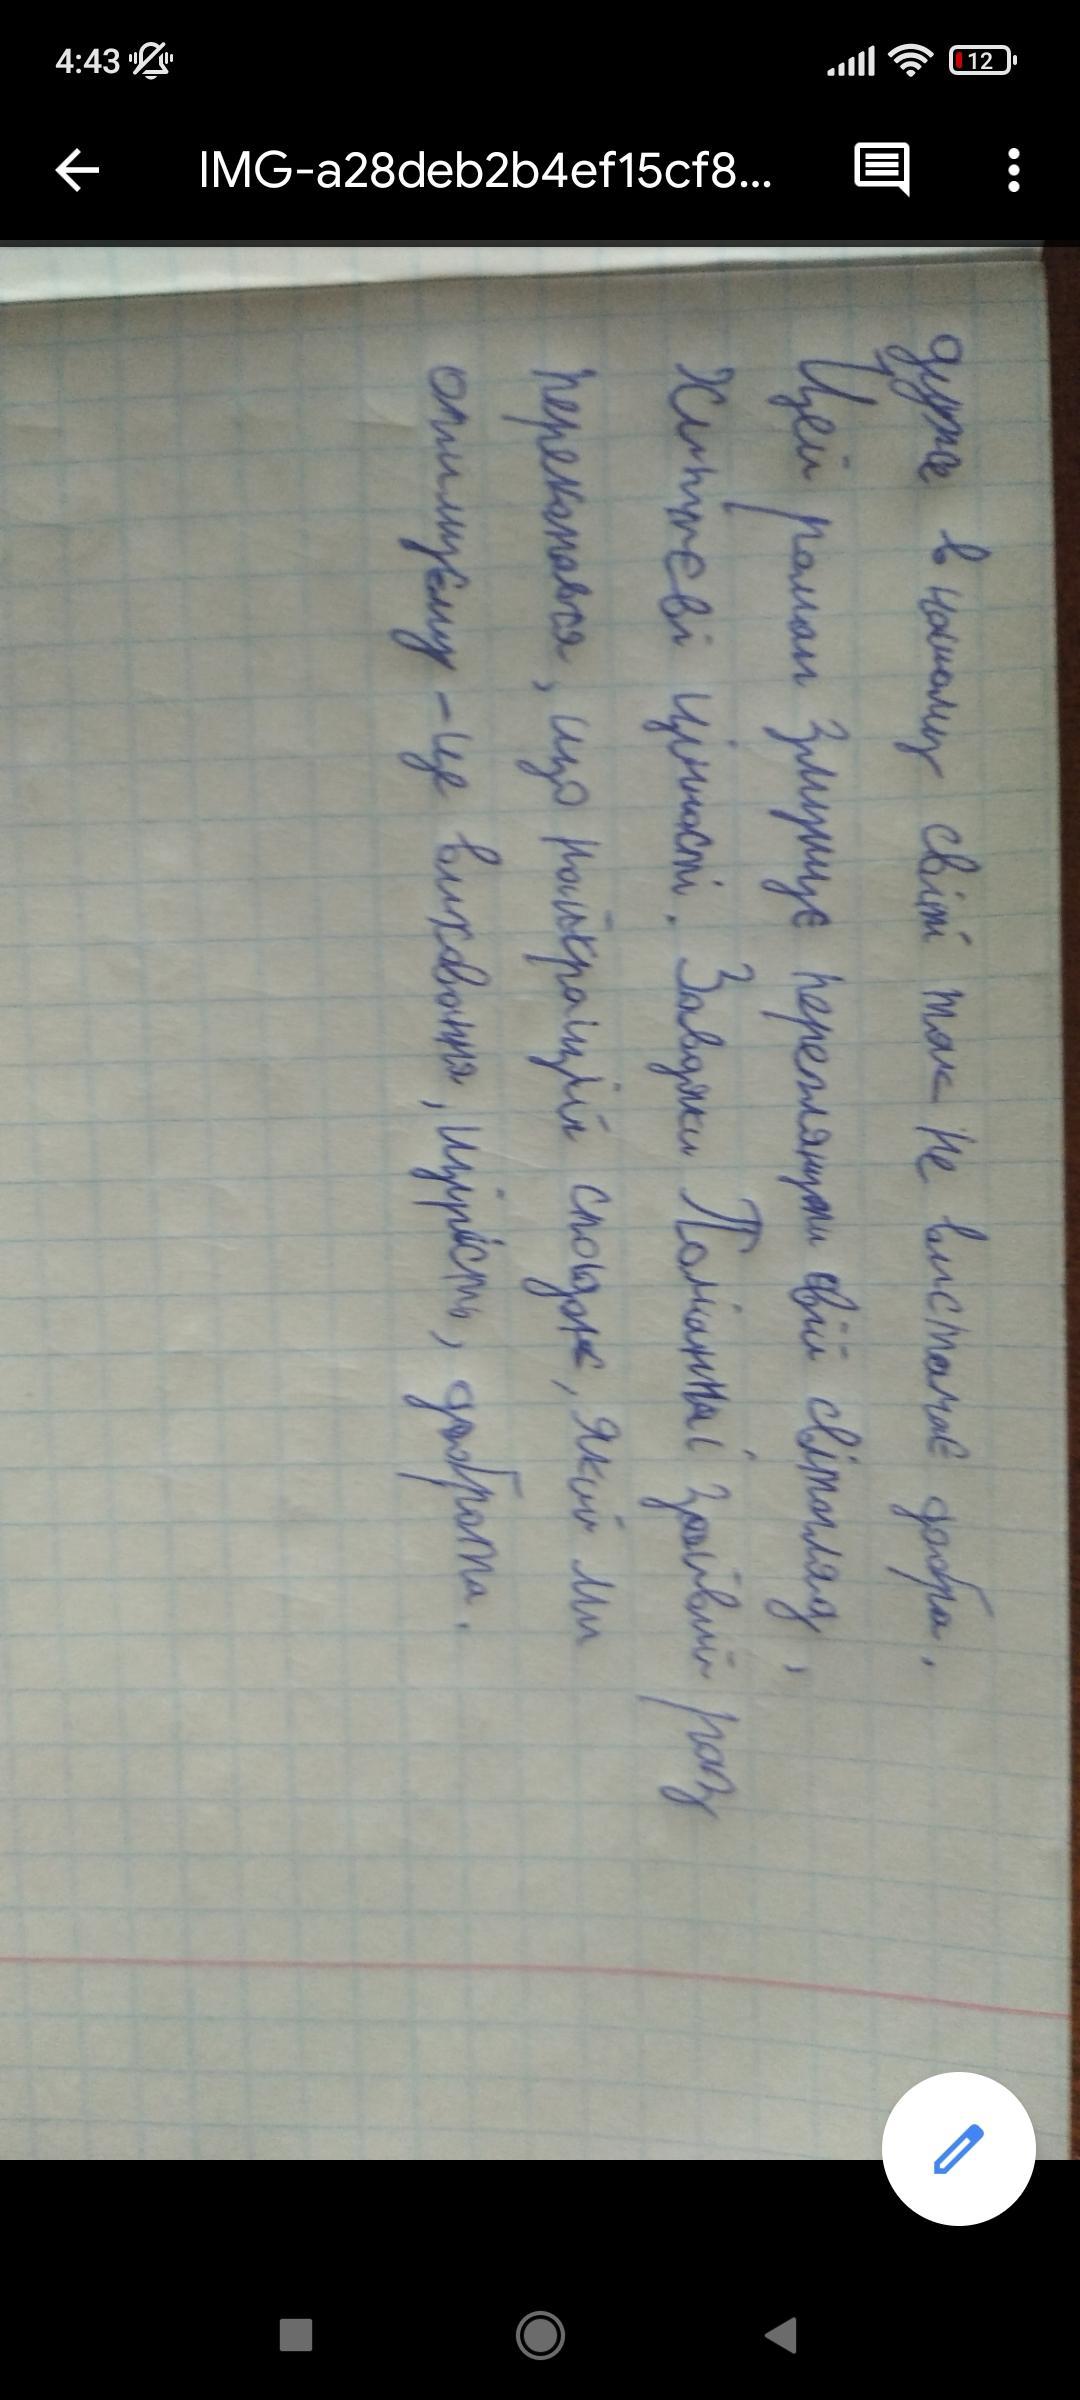 4:43
12
IMG-a28deb2b4ef15cf8...
дуже в нашому світі так не вистачає добра,
Цей роман змушує переглянути свій світогляд,
життєві цінності. Завдяки Поліанні зайвий раз
переконався, що найкращий спадок, який ми
отримуєму - це виховання, щирість, доброта.